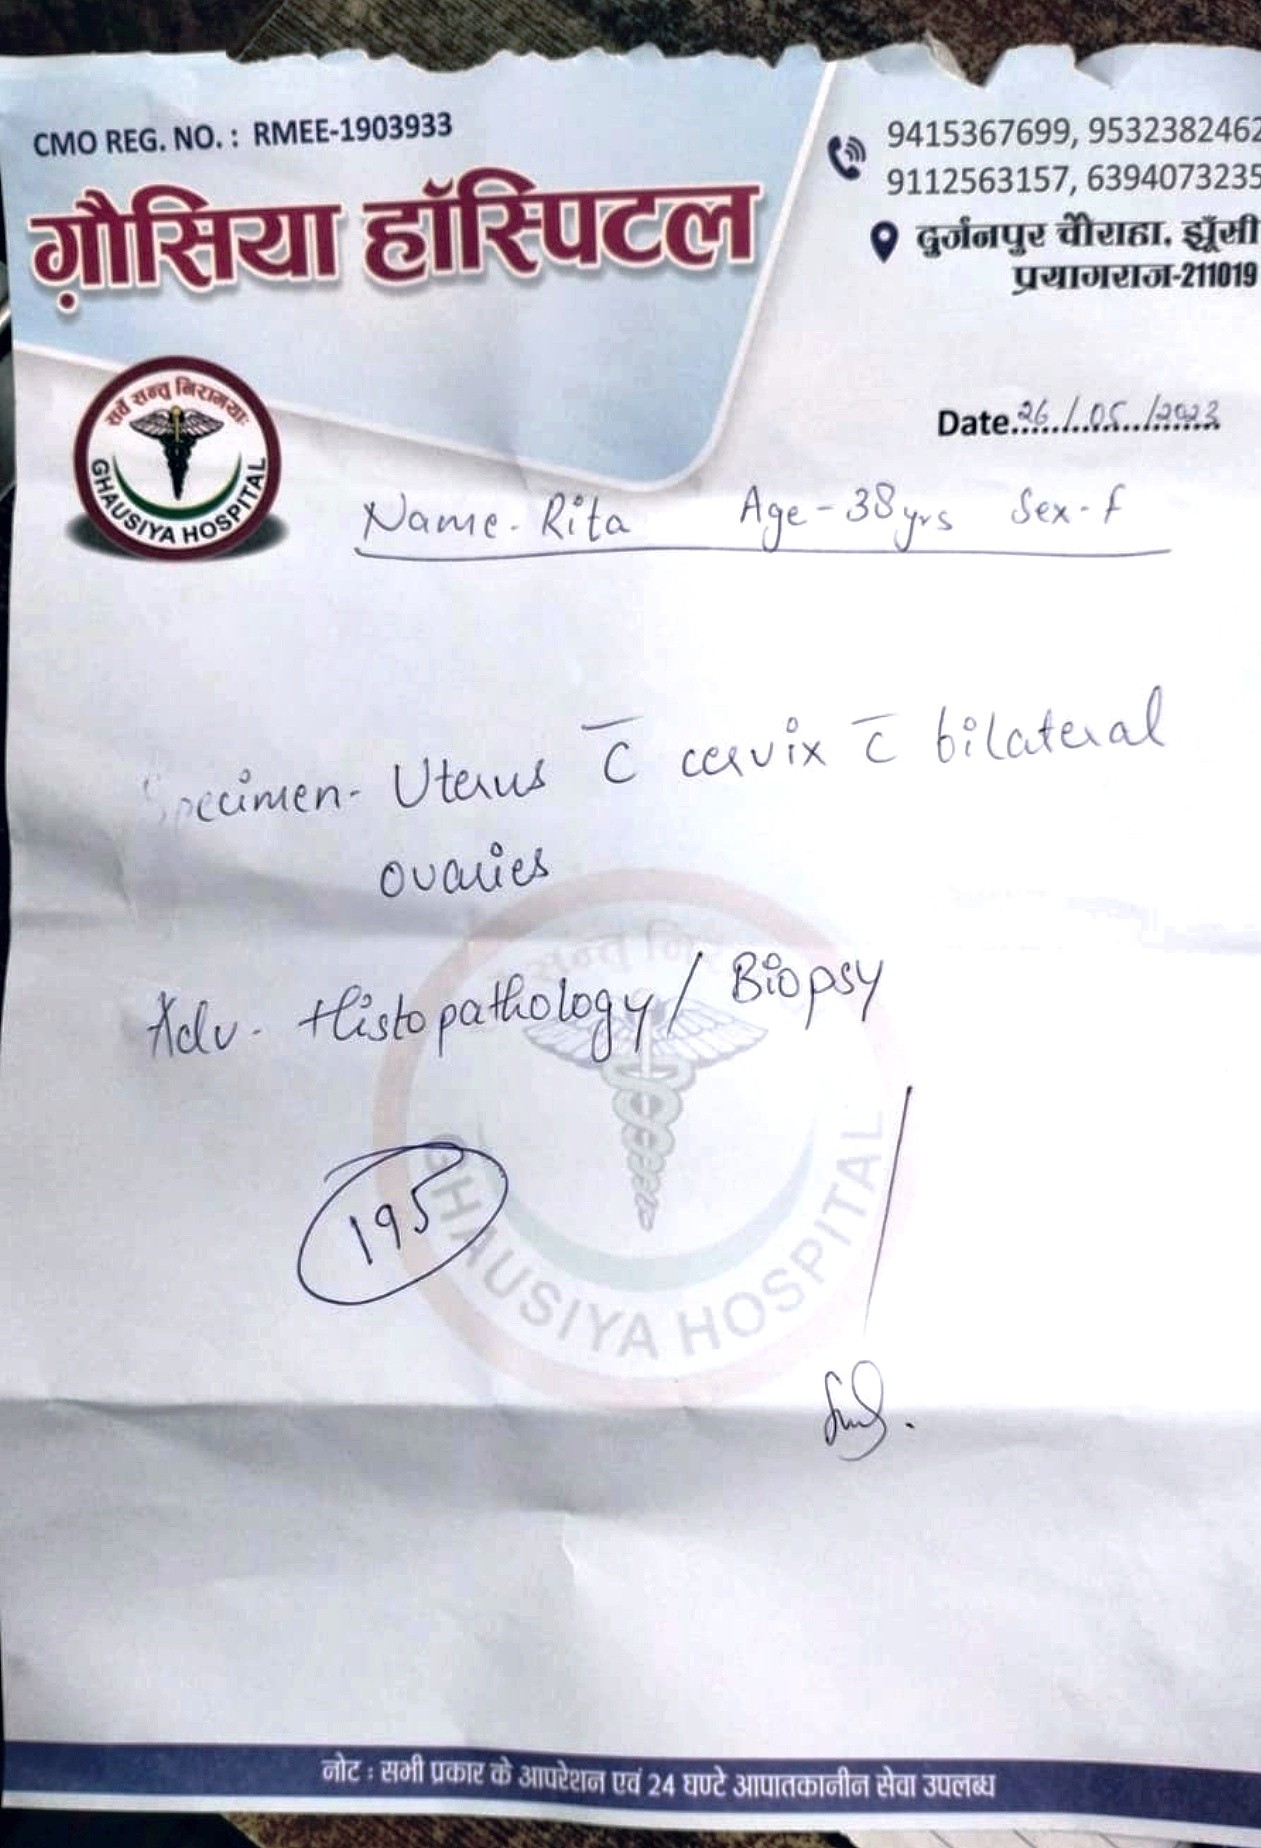 CMO REG. NO. : RMEE-1903933
9415367699, 9532382462
9112563157, 6394073235
ग़ौसिया हॉस्पिटल
दुर्जनपुर चौराहा, झूँसी
प्रयागराज-211019
सर्वे सन्तु निरामयाः
GHAUSIYA HOSPITAL
Date 26/05/2023
Name - Rita Age - 38 yrs Sex - f
Specimen - Uterus c̅ cervix c̅ bilateral
ovaries
Adv - Histopathology / Biopsy
195
सन्तु
GHAUSIYA HOSPITAL
नोट : सभी प्रकार के आपरेशन एवं 24 घण्टे आपातकानीन सेवा उपलब्ध